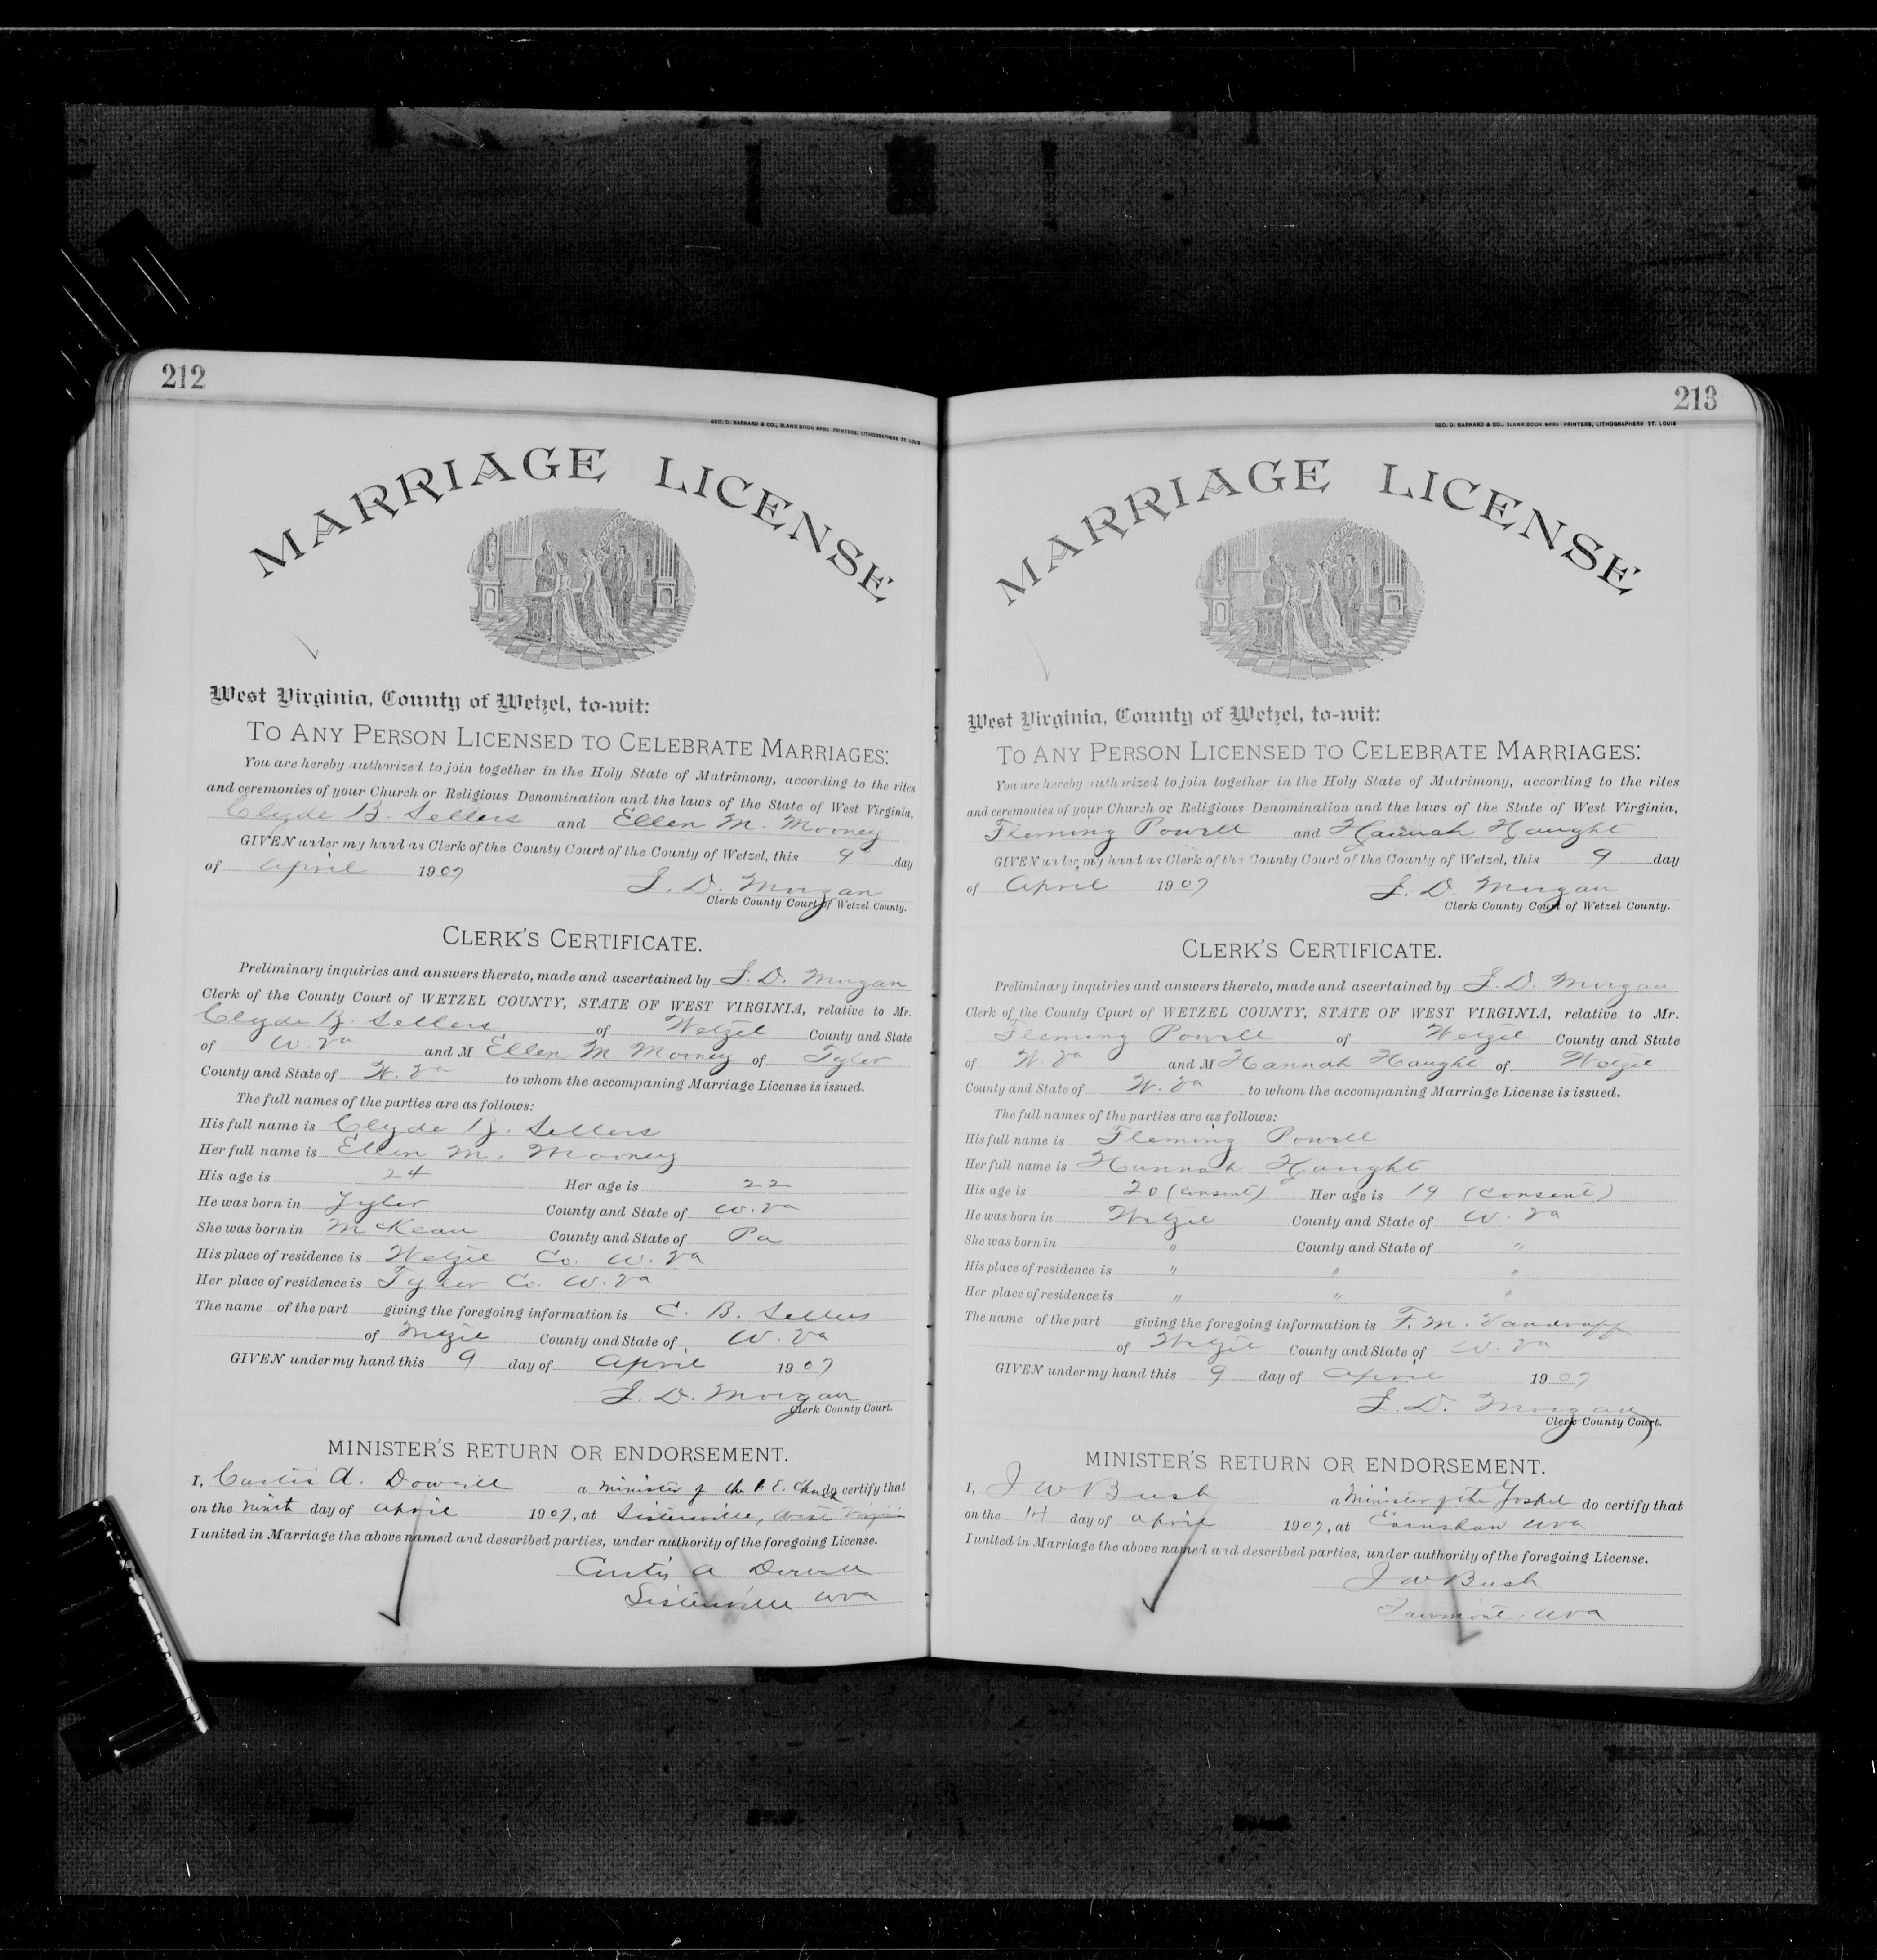 212
GEO. D. BARNARD & CO., BLANK BOOK MFRS PRINTERS, LITHOGRAPHERS ST. LOUIS
MARRIAGE LICENSE
West Virginia, County of Wetzel, to-wit:
TO ANY PERSON LICENSED TO CELEBRATE MARRIAGES:
You are hereby authorized to join together in the Holy State of Matrimony, according to the rites
and ceremonies of your Church or Religious Denomination and the laws of the State of West Virginia,
Clyde B. Sellers and Ellen M. Mooney
GIVEN under my hand as Clerk of the County Court of the County of Wetzel, this 9 day
of April 1907
S. D. Morgan
Clerk County Court of Wetzel County.
CLERK'S CERTIFICATE.
Preliminary inquiries and answers thereto, made and ascertained by S. D. Morgan
Clerk of the County Court of WETZEL COUNTY, STATE OF WEST VIRGINIA, relative to Mr.
Clyde B. Sellers of Wetzel County and State
of W. Va and M Ellen M. Mooney of Tyler
County and State of W. Va to whom the accompaning Marriage License is issued.
The full names of the parties are as follows:
His full name is Clyde B. Sellers
Her full name is Ellen M. Mooney
His age is 24 Her age is 22
He was born in Tyler County and State of W. Va
She was born in McKean County and State of Pa
His place of residence is Wetzel Co. W. Va
Her place of residence is Tyler Co. W. Va
The name of the part giving the foregoing information is C. B. Sellers
of Wetzel County and State of W. Va
GIVEN under my hand this 9 day of April 1907
S. D. Morgan
Clerk County Court.
MINISTER'S RETURN OR ENDORSEMENT.
I, Curtis A. Dowell a minister of the Church do certify that
on the Ninth day of April 1907, at Sistersville, West Virginia
I united in Marriage the above named and described parties, under authority of the foregoing License.
Curtis A Dowell
Sistersville WVa
213
GEO. D. BARNARD & CO., BLANK BOOK MFRS PRINTERS, LITHOGRAPHERS ST. LOUIS
MARRIAGE LICENSE
West Virginia, County of Wetzel, to-wit:
TO ANY PERSON LICENSED TO CELEBRATE MARRIAGES:
You are hereby authorized to join together in the Holy State of Matrimony, according to the rites
and ceremonies of your Church or Religious Denomination and the laws of the State of West Virginia,
Fleming Powell and Hannah Haught
GIVEN under my hand as Clerk of the County Court of the County of Wetzel, this 9 day
of April 1907
S. D. Morgan
Clerk County Court of Wetzel County.
CLERK'S CERTIFICATE.
Preliminary inquiries and answers thereto, made and ascertained by S. D. Morgan
Clerk of the County Court of WETZEL COUNTY, STATE OF WEST VIRGINIA, relative to Mr.
Fleming Powell of Wetzel County and State
of W. Va and M Hannah Haught of Wetzel
County and State of W. Va to whom the accompaning Marriage License is issued.
The full names of the parties are as follows:
His full name is Fleming Powell
Her full name is Hannah Haught
His age is 20 (consent) Her age is 19 (consent)
He was born in Wetzel County and State of W. Va
She was born in " County and State of "
His place of residence is " " "
Her place of residence is " " "
The name of the part giving the foregoing information is F. M. Vandruff
of Wetzel County and State of W. Va
GIVEN under my hand this 9 day of April 1907
S. D. Morgan
Clerk County Court.
MINISTER'S RETURN OR ENDORSEMENT.
I, J W Bush a Minister of the Gospel do certify that
on the 14 day of April 1907, at Earnshaw WVa
I united in Marriage the above named and described parties, under authority of the foregoing License.
J W Bush
Fairmont, WVa